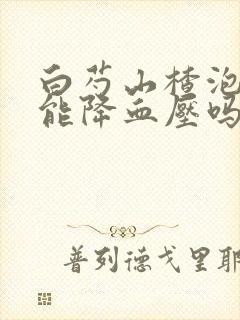 白芍山楂泡
能降血壓吗
普列德戈里耶